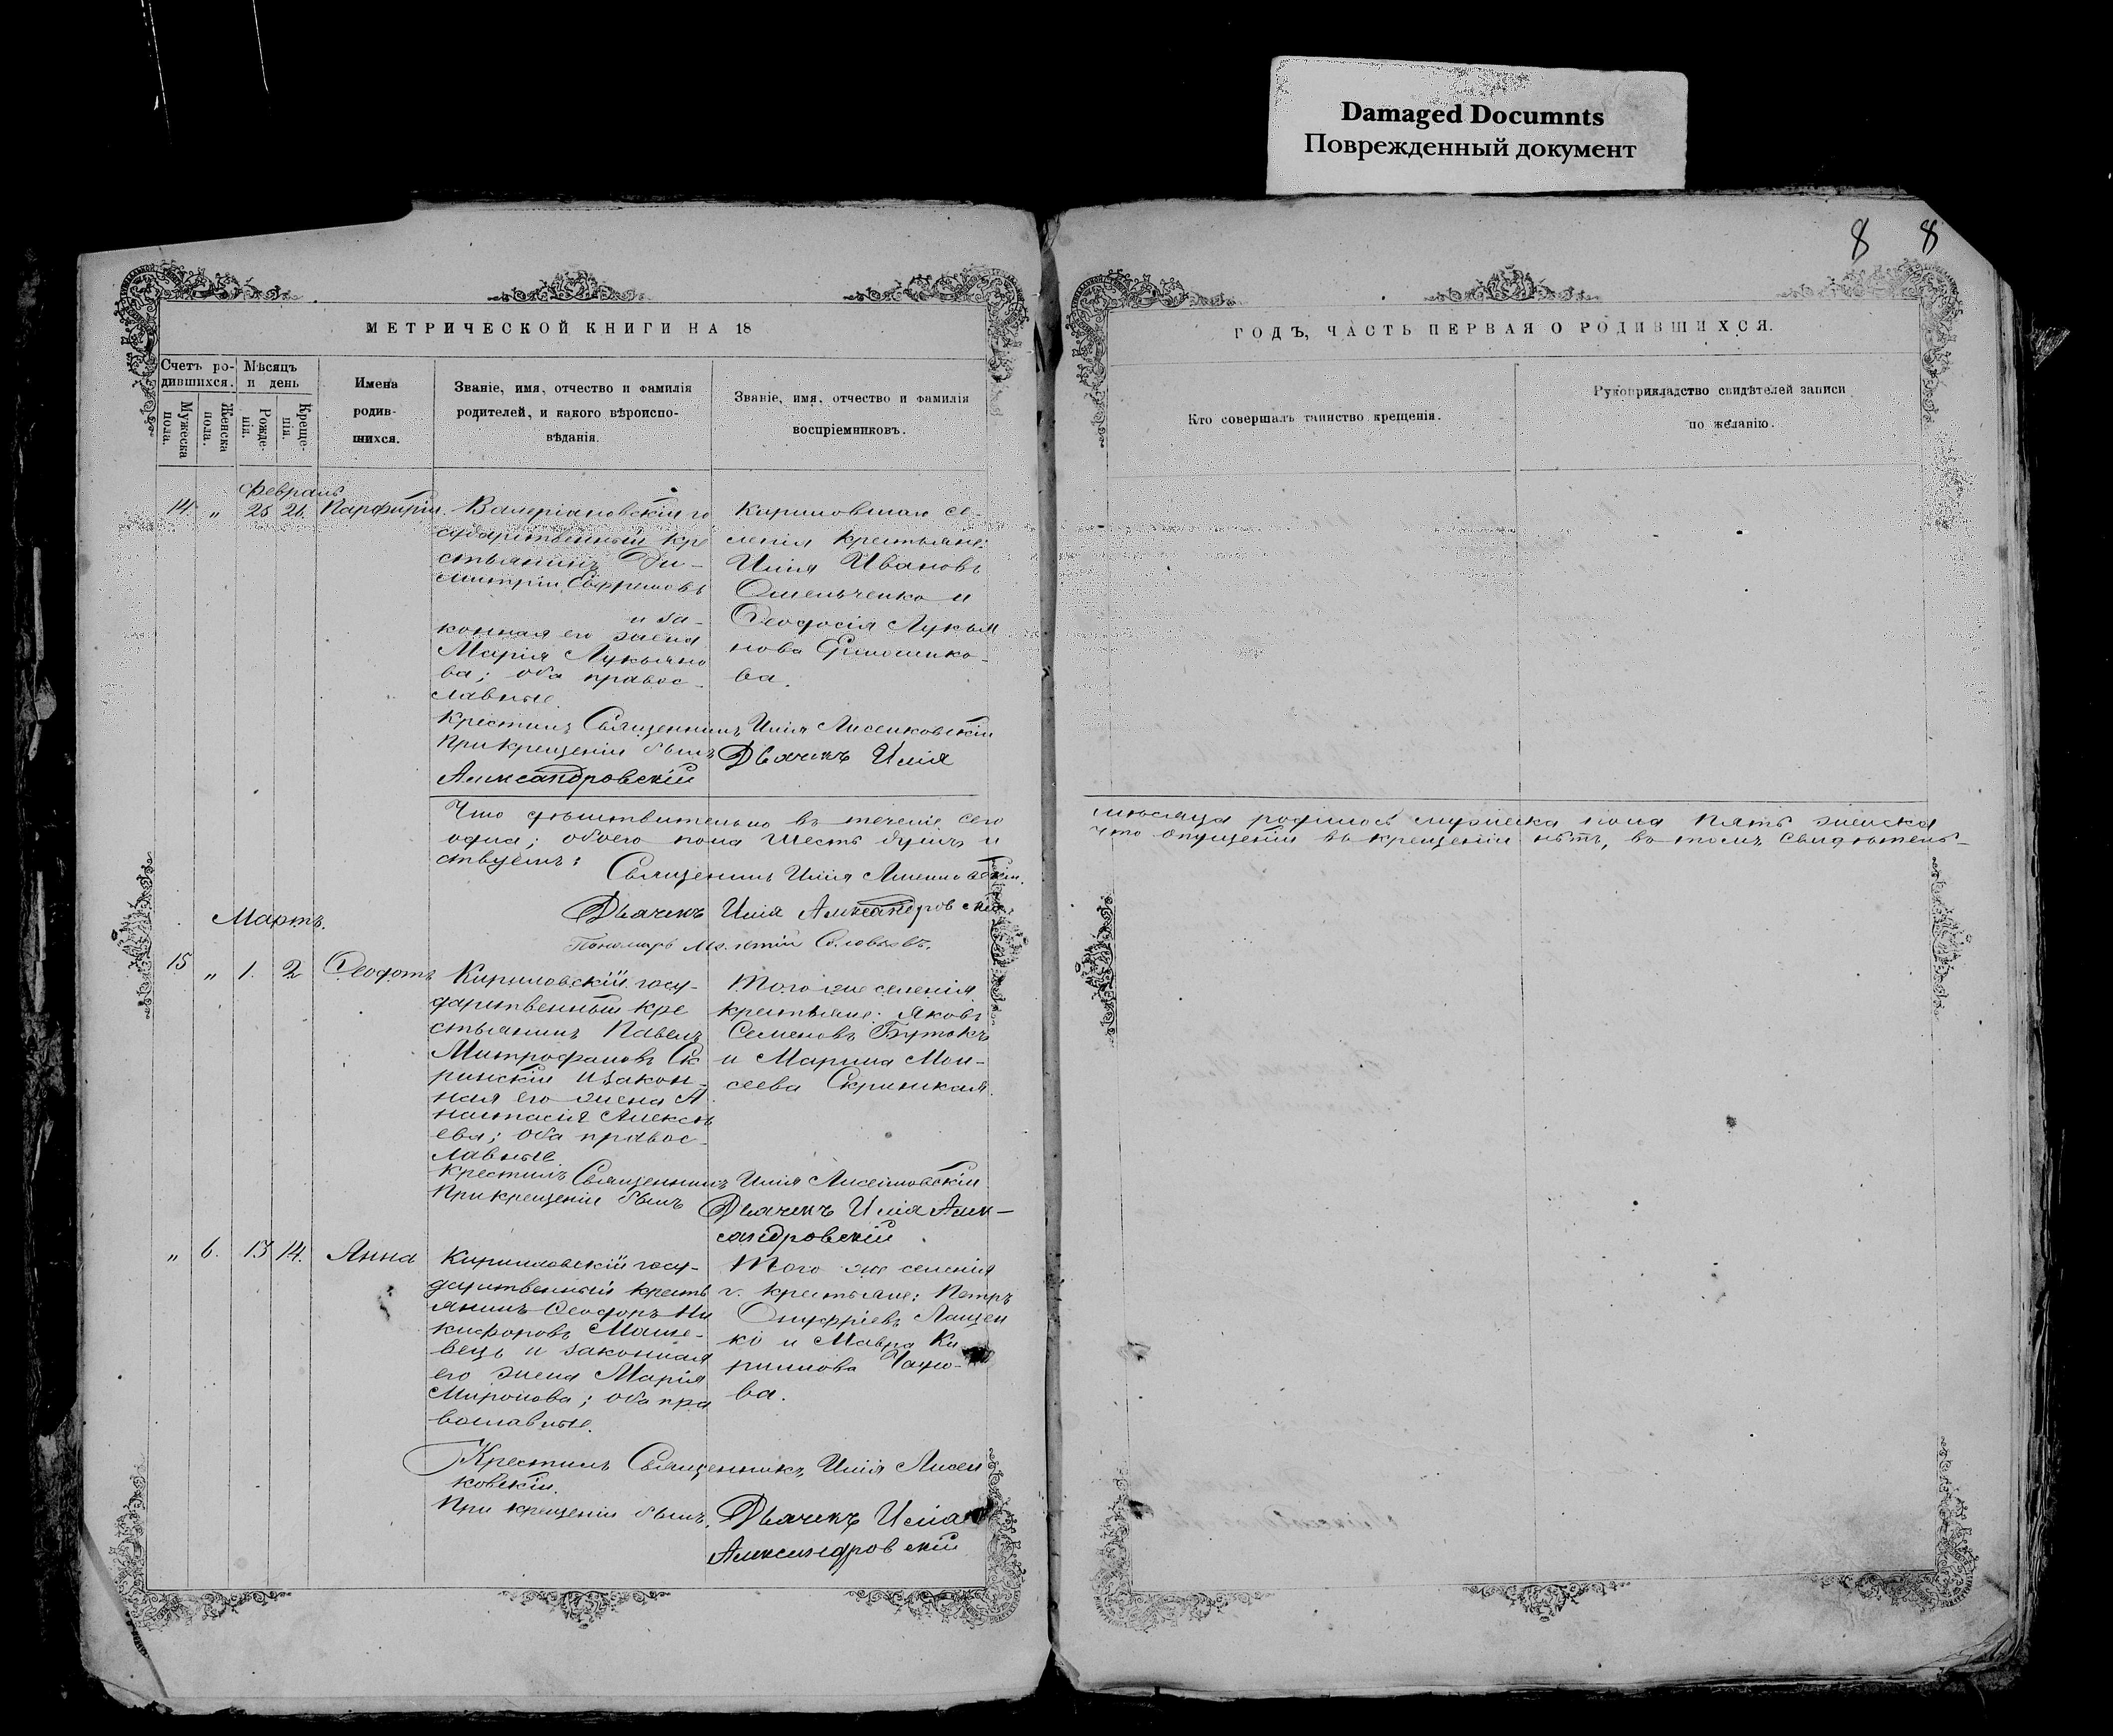 Damaged Documnts
Поврежденный документ
8 8
МЕТРИЧЕСКОЙ КНИГИ НА 18
ГОДЪ, ЧАСТЬ ПЕРВАЯ О РОДИВШИХСЯ.
Счетъ ро-
дившихся.
Мужеска
пола.
Женска
пола.
Мѣсяцъ
и день
Рожде-
нія.
Креще-
нія.
Имена
родив-
шихся.
Званіе, имя, отчество и фамилія
родителей, и какого вѣроиспо-
вѣданія.
Званіе, имя, отчество и фамилія
воспріемниковъ.
Кто совершалъ таинство крещенія.
Рукоприкладство свидѣтелей записи
по желанію.
Февраль
14 „ 25 26. Парфирій
Валеріановскій го
сударственный кре
стьянинъ Ди-
митрій Ефремовъ
и за-
конная его жена
Марія Лукьяно
ва; оба правос-
лавные.
Кириловскаго се-
ленія крестьяне:
Илія Ивановъ
Омельченко и
Феодосія Лукья
нова
ва.
Крестилъ Священникъ Илія Лисенковскій
При крещеніи былъ Дьячекъ Илія
Александровскій
Что дѣйствительно въ теченіе сего
мѣсяца родилось мужеска пола пять женска
одна; обоего пола шесть душъ и
что опущеній въ крещеніи нѣтъ, въ томъ свидѣтель-
ствуемъ:
Священникъ Илія Лисенковскій.
Дьячекъ Илія Александровскій
Пономарь Соловьевъ.
Мартъ.
15 „ 1. 2 Феодотъ
Кириловскій госу-
дарственный кре
стьянинъ Павелъ
Митрофановъ Ск
ринскій и закон-
ная его жена А
настасія Алексѣ
ева; оба правос-
лавные
Того же селенія
крестьяне: Яковъ
Семеновъ Бутокъ
и Марина Мои-
сеева Скринская.
Крестилъ Священникъ Илія Лисенковскій
При крещеніи былъ Дьячекъ Илія Алек-
сандровскій.
„ 6. 13 14. Анна
Кириловскій госу-
дарственный кресть
янинъ Феодоръ Ни
кифоровъ Маше-
вецъ и законная
его жена Марія
Миронова; оба пра
вославные.
Того же селенія
г. крестьяне: Петръ
Онуфріевъ Лащен
ко и Мавра Ки-
рилова
ва.
Крестилъ Священникъ Илія Лисен
ковскій.
При крещеніи былъ. Дьячекъ Илія
Александровскій